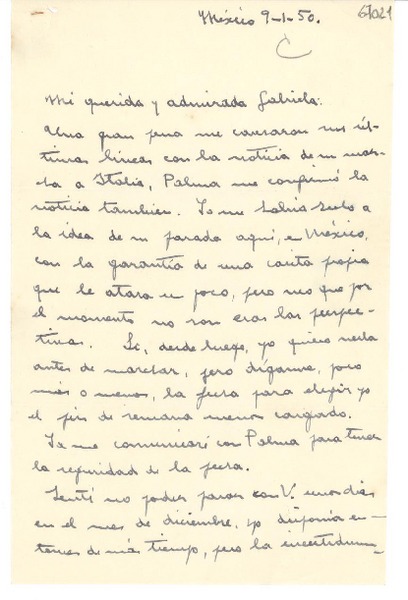 México 9-1-50.
67021
C
Mi querida y admirada Gabriela:
Una gran pena me causaron sus úl-
timas líneas con la noticia de su mar-
cha a Italia, Palma me confirmó la
noticia tambien. Ya me había hecho a
la idea de su parada aquí, en México,
con la garantía de una casita propia
que le atara un poco, pero veo que por
el momento no son esas las perspec-
tivas. Sí, desde luego, yo quiero verla
antes de marchar, pero díganme, poco
más o menos, la fecha para elegir yo
el fin de semana menos cargado.
Ya me comunicaré con Palma para tener
la seguridad de la fecha.
Sentí no poder pasar con V. unos días
en el mes de diciembre, yo disponía en-
tonces de más tiempo, pero la incertidum-